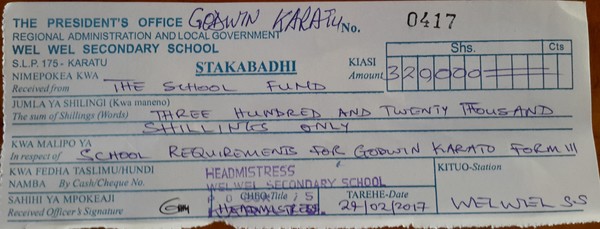 THE PRESIDENT'S OFFICE GODWIN KARATU No. 0417
REGIONAL ADMINISTRATION AND LOCAL GOVERNMENT
WEL WEL SECONDARY SCHOOL
S.L.P. 175 - KARATU
STAKABADHI
KIASI Shs. Cts
Amount 329000
NIMEPOKEA KWA
Received from THE SCHOOL FUND
JUMLA YA SHILINGI (Kwa maneno)
The sum of Shillings (Words) THREE HUNDRED AND TWENTY THOUSAND
SHILLINGS ONLY
KWA MALIPO YA
In respect of SCHOOL REQUIREMENTS FOR GODWIN KARATO FORM III
KWA FEDHA TASLIMU/HUNDI HEADMISTRESS KITUO-Station
NAMBA By Cash/Cheque No. WELWEL SECONDARY SCHOOL
SAHIHI YA MPOKEAJI CHEO-Title TAREHE-Date
Received Officer's Signature HEADMISTRESS. 24/02/2017 WELWEL S.S